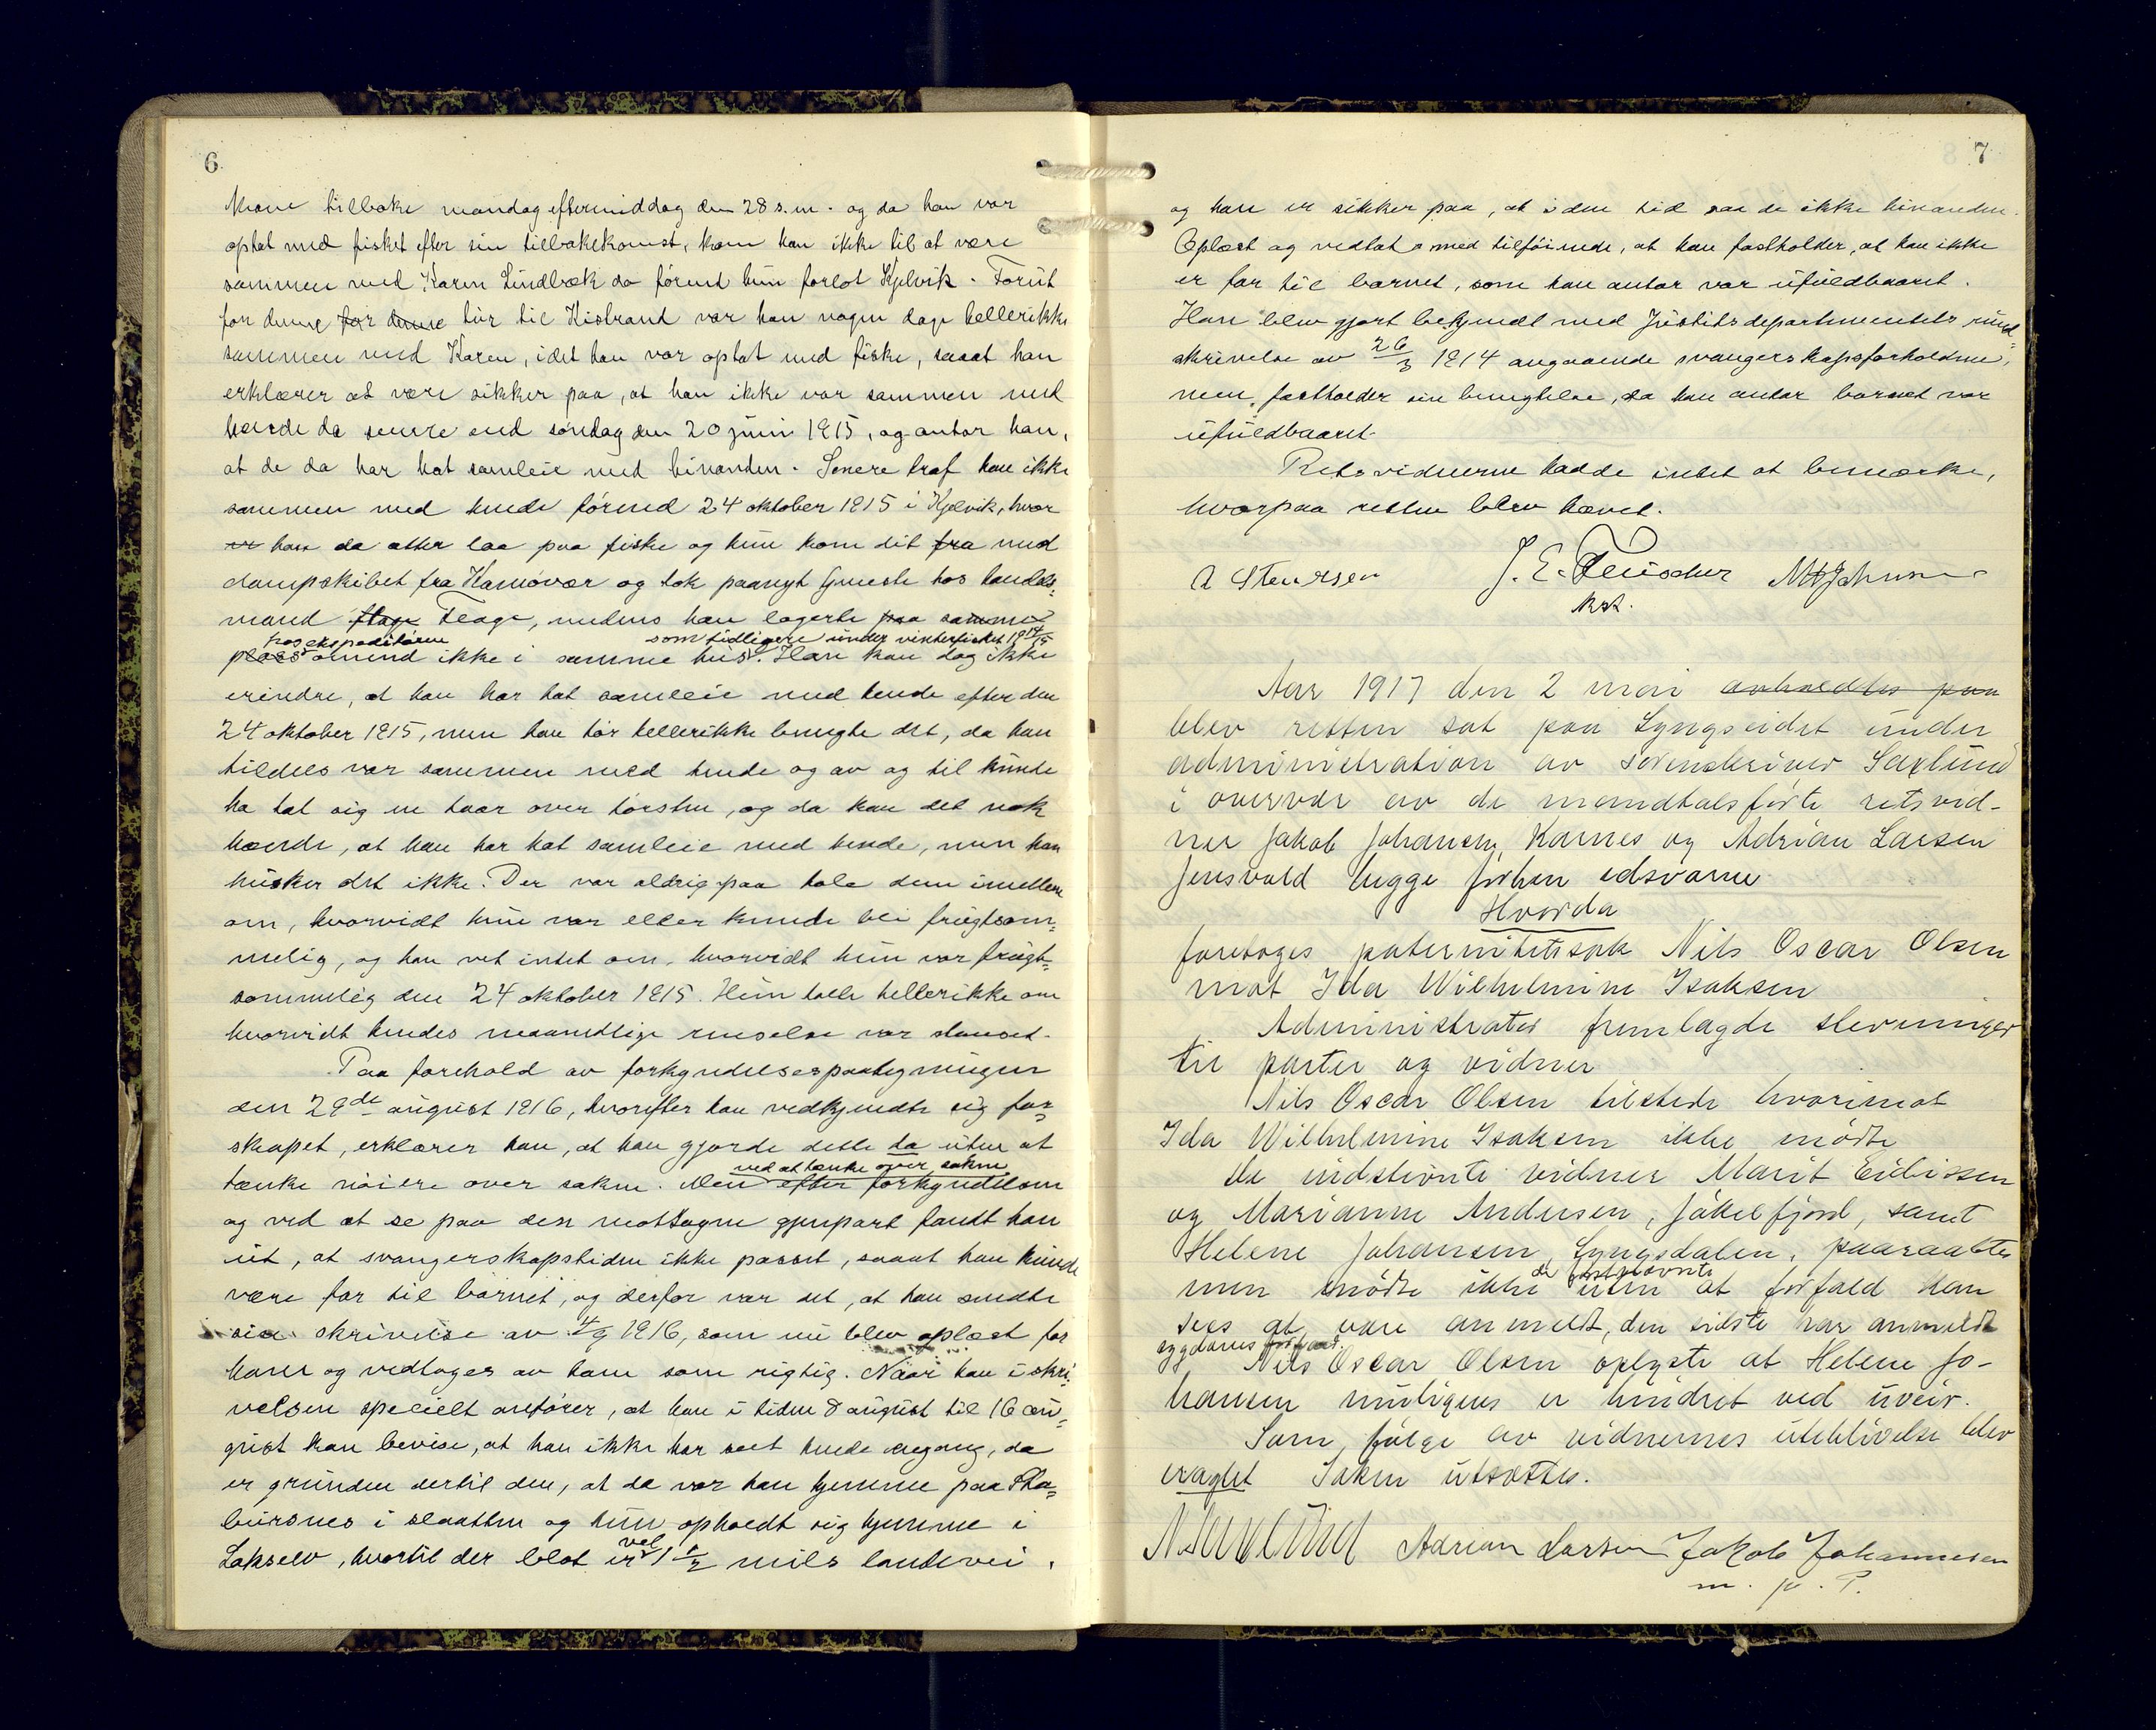 6
kom tilbake mandag eftermiddag den 28 s.m. og da han var
optat med fisket efter sin tilbakekomst, kom han ikke til at være
sammen med Karen Lindbæk da førend hun forlot Kjelvik. Forut
for denne for denne tur til Kistrand var han nogen dage hellerikke
sammen med Karen, idet han var optat med fiske, saaat han
erklærer at være sikker paa, at han ikke var sammen med
hende da senere end søndag den 20 juni 1915, og antar han,
at de da har hat samleie med hinanden. Senere traf han ikke
sammen med hende førend 24 oktober 1915 i Kjelvik, hvor
han da atter laa paa fiske og hun kom dit fra med
dampskibet fra Hamøvær og tok paanyt tjeneste hos handels-
mand Flage Flage, medens han logerte paa samme
hos ekspeditøren som tidligere under vinterfisket 1914/15
plass omend ikke i samme hus. Han kan dog ikke
erindre, at han har hat samleie med hende efter den
24 oktober 1915, men han tør hellerikke benegte det, da han
tildels var sammen med hende og av og til kunde
ha tat sig en taar over tørsten, og da kan det nok
hænde, at han har hat samleie med hende, men han
husker det ikke. Der var aldrig paa tale dem imellem
om, hvorvidt hun var eller kunde bli frugtsom-
melig, og han vet intet om, hvorvidt hun var frugt-
sommelig den 24 oktober 1915. Hun talte hellerikke om
hvorvidt hendes maanedlige renselse var stanset.
Paa forehold av forkyndelsespaategningen
den 29de august 1916, hvorefter han vedkjendte sig far-
skapet, erklærer han, at han gjorde dette da uten at
ved at tænke over saken
tænke nøiere over saken. Men efter forkyndelsen
og ved at se paa den mottagne gjenpart fandt han
ut, at svangerskapstiden ikke passet, saaat han kunde
være far til barnet, og derfor var det, at han sendte
sin skrivelse av 4/9 1916, som nu blev oplæst for
ham og vedtoges av ham som rigtig. Naar han i skri-
velsen specielt anfører, at han i tiden 8 august til 16 au-
gust kan bevise, at han ikke har seet hende engang, da
er grunden dertil den, at da var han hjemme paa Sta-
bursnes i slaatten og hun opholdt sig hjemme i
vel
Lakselv, hvortil der blot er 1 1/2 mils landevei,
7
og han er sikker paa, at i den tid saa de ikke hinanden.
Oplæst og vedtat med tilføiende, at han fastholder, at han ikke
er far til barnet, som han antar var ufuldbaaret.
Han blev gjort bekjendt med Justitsdepartementets rund-
skrivelse av 26/3 1914 angaaende svangerskapsforholdene,
men fastholder sin benegtelse, da han antar barnet var
ufuldbaaret.
Retsvidnerne hadde intet at bemerke,
hvorpaa retten blev hævet.
A Steursen J. E. Teuscher
kst.
Aar 1917 den 2 mai anholdtes paa
blev retten sat paa Lyngseidet under
administration av sorenskriver Saxlund
i overvær av de mandtalsførte retsvid-
ner Jakob Johansen, Karnes og Adrian Larsen
Jensvold begge forhen edsvorne
Hvorda
foretoges paternitetssak Nils Oscar Olsen
mot Ida Wilhelmine Isaksen
Administrator fremlagde stevninger
til parter og vidner
Nils Oscar Olsen tilstede hvorimot
Ida Wilhelmine Isaksen ikke mødte
De indstevnte vidner Marit Eribissen
og Marianne Andersen, Jøkelfjord, samt
Helene Johansen, Lyngsdalen, paaraabtes
de førstnævnte
men mødte ikke uten at forfald kan
sees at være anmeldt, den sidste har anmeldt
sygdoms forfald.
Nils Oscar Olsen oplyste at Helene Jo-
hansen muligens er hindret ved uveir.
Som følge av vidnernes uteblivelse blev
eragtet Saken utsættes.
Adrian Larsen Jakob Johannesen
m. p. P.